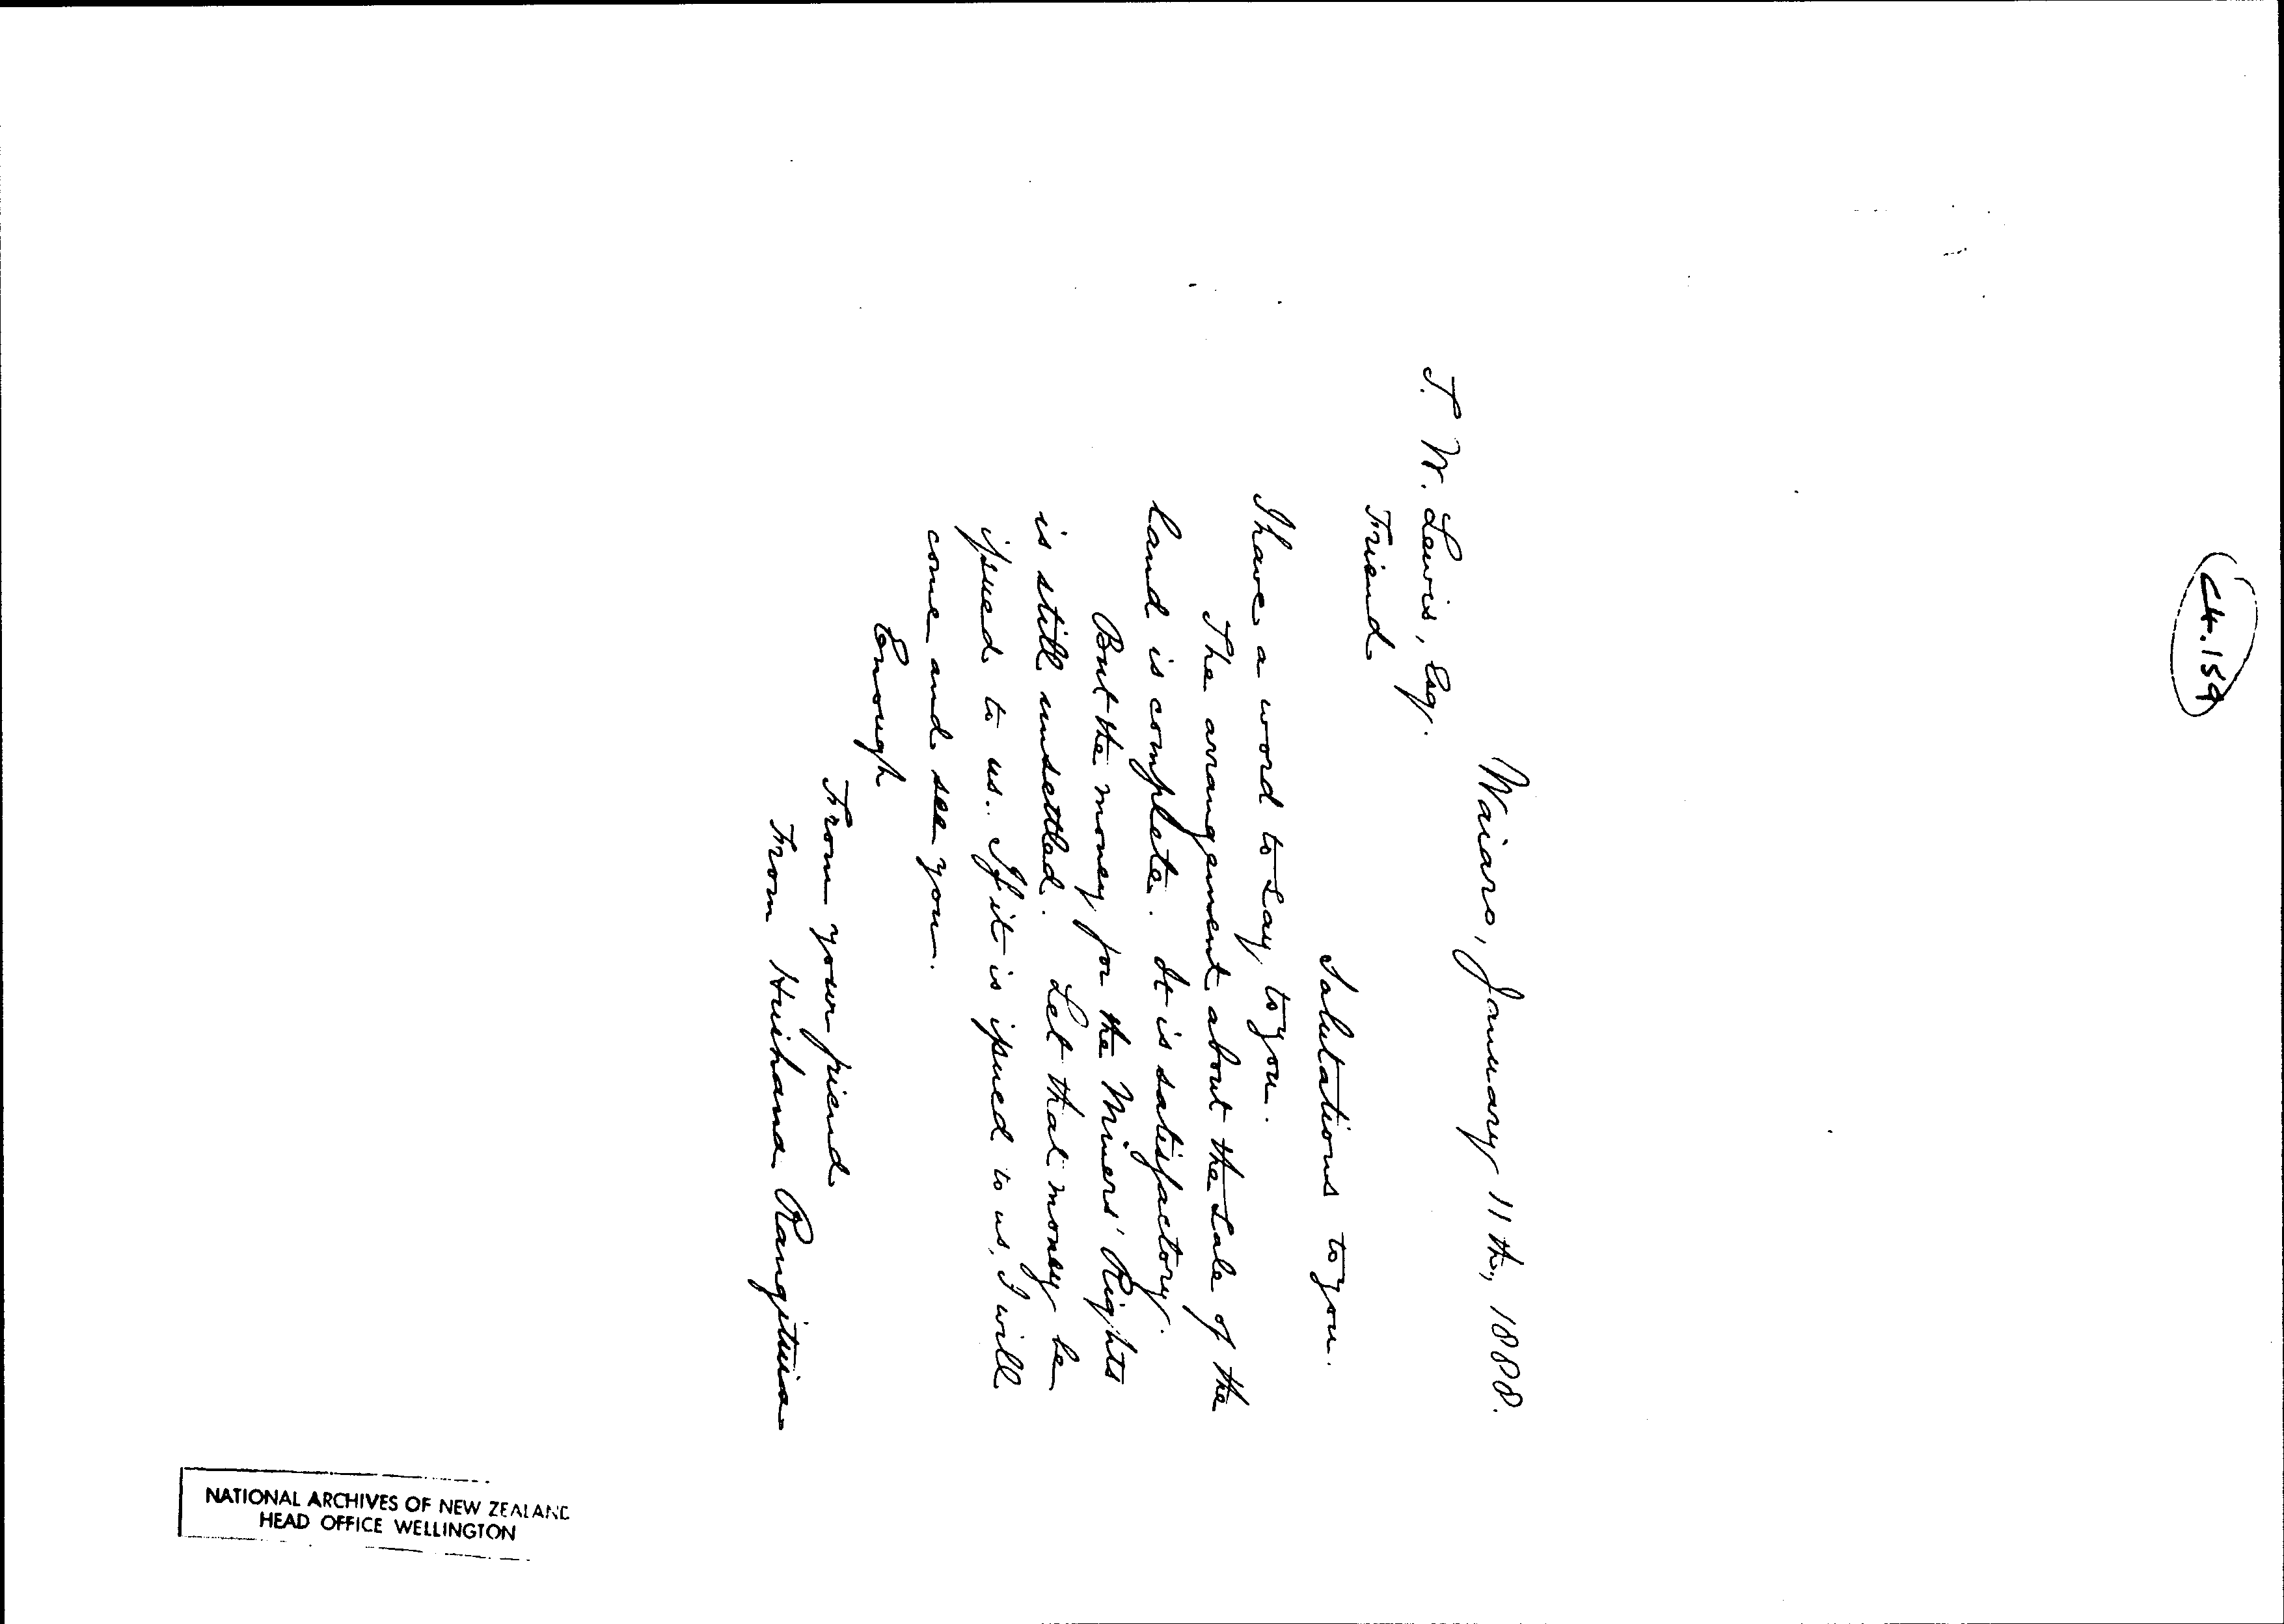 C4.159
Waiaro, January 11th., 1888.
T. W. Lewis, Esq.
Friend
Salutations to you.
I have a word to say to you.
The arrangement about the sale of the
land is complete. It is satisfactory.
But the money for the Miners' Rights
is still unsettled. Let that money be
issued to us. If it is issued to us, I will
come and see you.
Enough
From your friend
From Huihana Rangituia
NATIONAL ARCHIVES OF NEW ZEALAND
HEAD OFFICE WELLINGTON